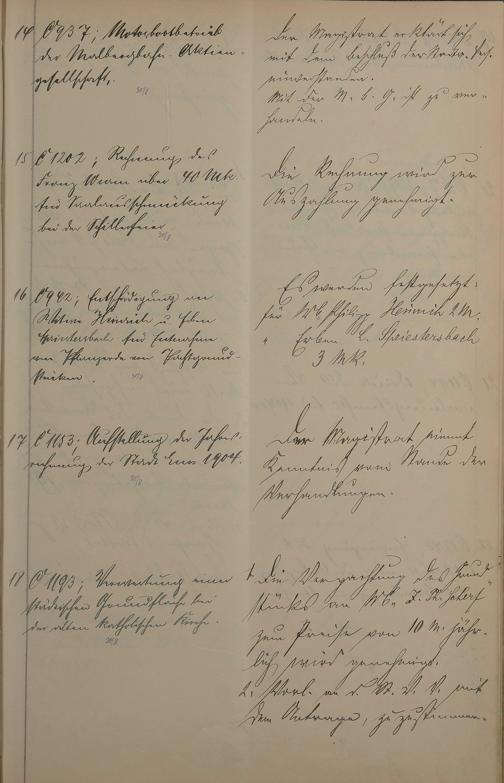 14 C 937; Motorbootbetrieb
der Malbergbahn-Aktien-
gesellschaft.
Der Magistrat erklärt sich
mit dem Beschluß der
einverstanden.
Mit der M. b. G. ist zu ver-
handeln.
15 C 1202; Rechnung des
Franz über 40 Mk.
für Saalausschmückung
bei der Schillerfeier
Die Rechnung wird zur
Auszahlung genehmigt.
16 C 942; Entschädigung an
Witwe Heinrich u. Erben
für Entnahme
von von Pachtgrund-
stücken.
Es werden festgesetzt:
für Wb. Philipp Heinrich 2 M.
" Erben C. Speiestersbach
3 Mk.
17 C 1153: Aufstellung der Jahres-
rechnung der Stadt Ems 1904.
Der Magistrat nimmt
Kenntnis vom Stande der
Verhandlungen.
18 C 1193; Verwertung einer
städtischen Grundfläche bei
der alten katholischen Kirche.
1. Die Verpachtung des Grund-
stücks an Wb. J.
zum Preise von 10 M. jähr-
lich wird genehmigt.
2. Vorl. an d. St. V. V. mit
dem Antrage, zuzustimmen.